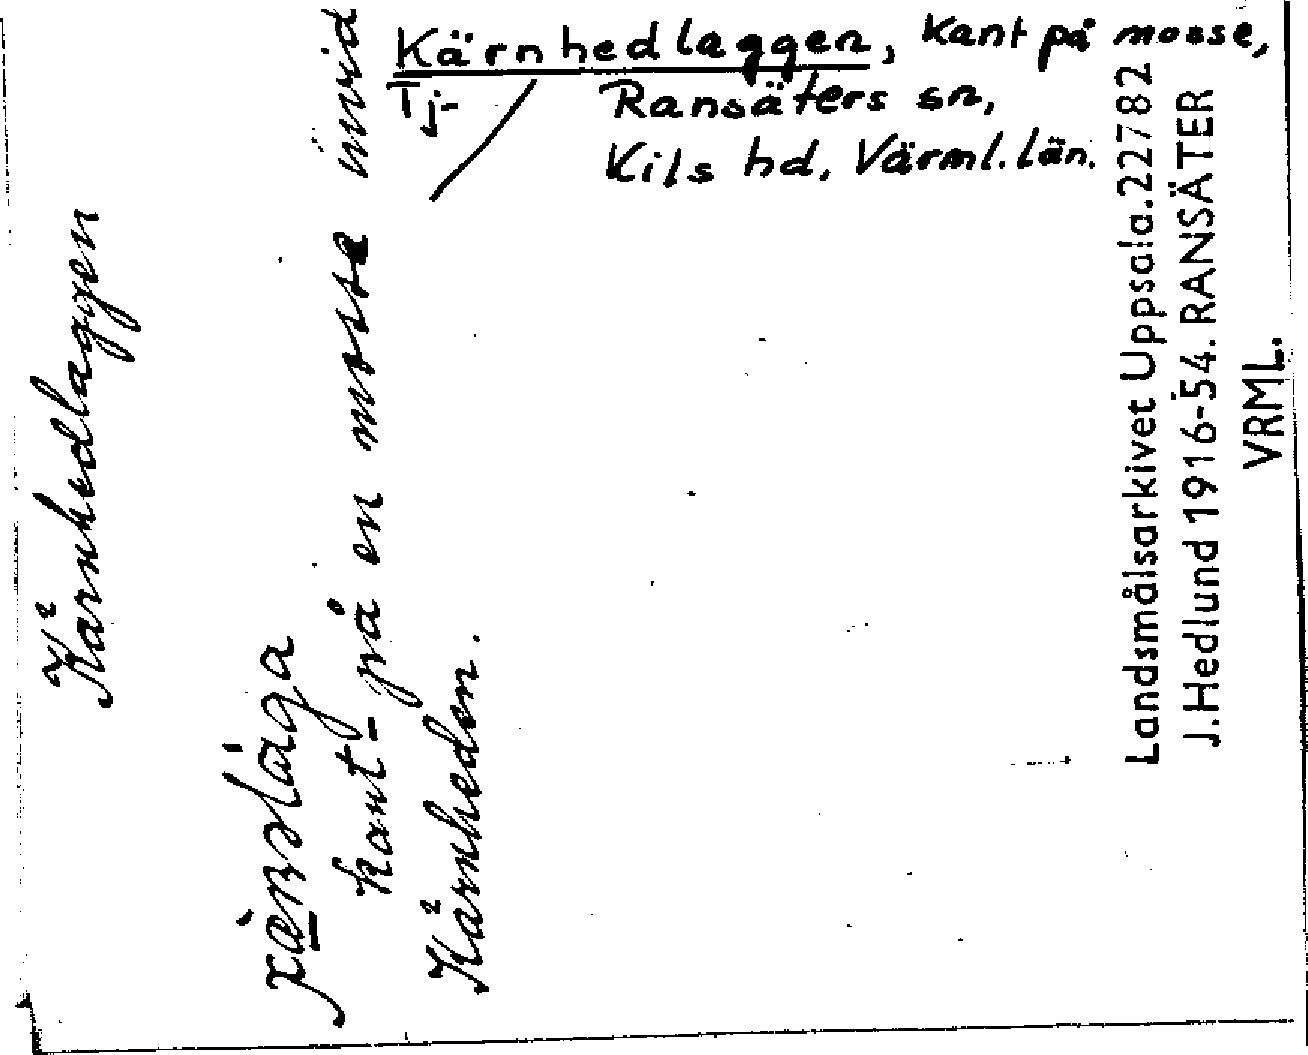 Kärnhedlaggen, kant på mosse,
Tj-
Ransäters sn,
Kils hd, Värml. län.
Kärnhedlaggen
kant på en mosse invid
Kärnheden.
Landsmålsarkivet Uppsala.22782
J.Hedlund 1916-54. RANSÄTER
VRML.